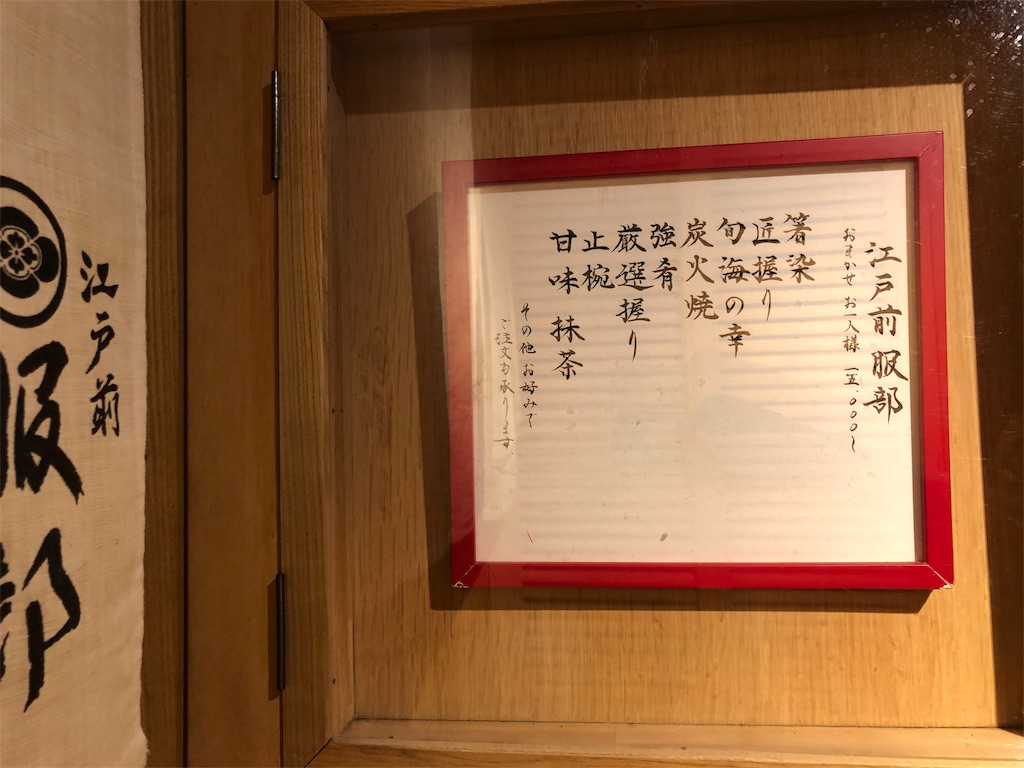 江戸前 服部
おまかせ お一人様 一五.〇〇〇〜
箸染
匠握り
旬海の幸
炭火焼
強肴
厳選握り
止椀
甘味 抹茶
その他 お好みで
ご注文も承ります。
江戸前
服部